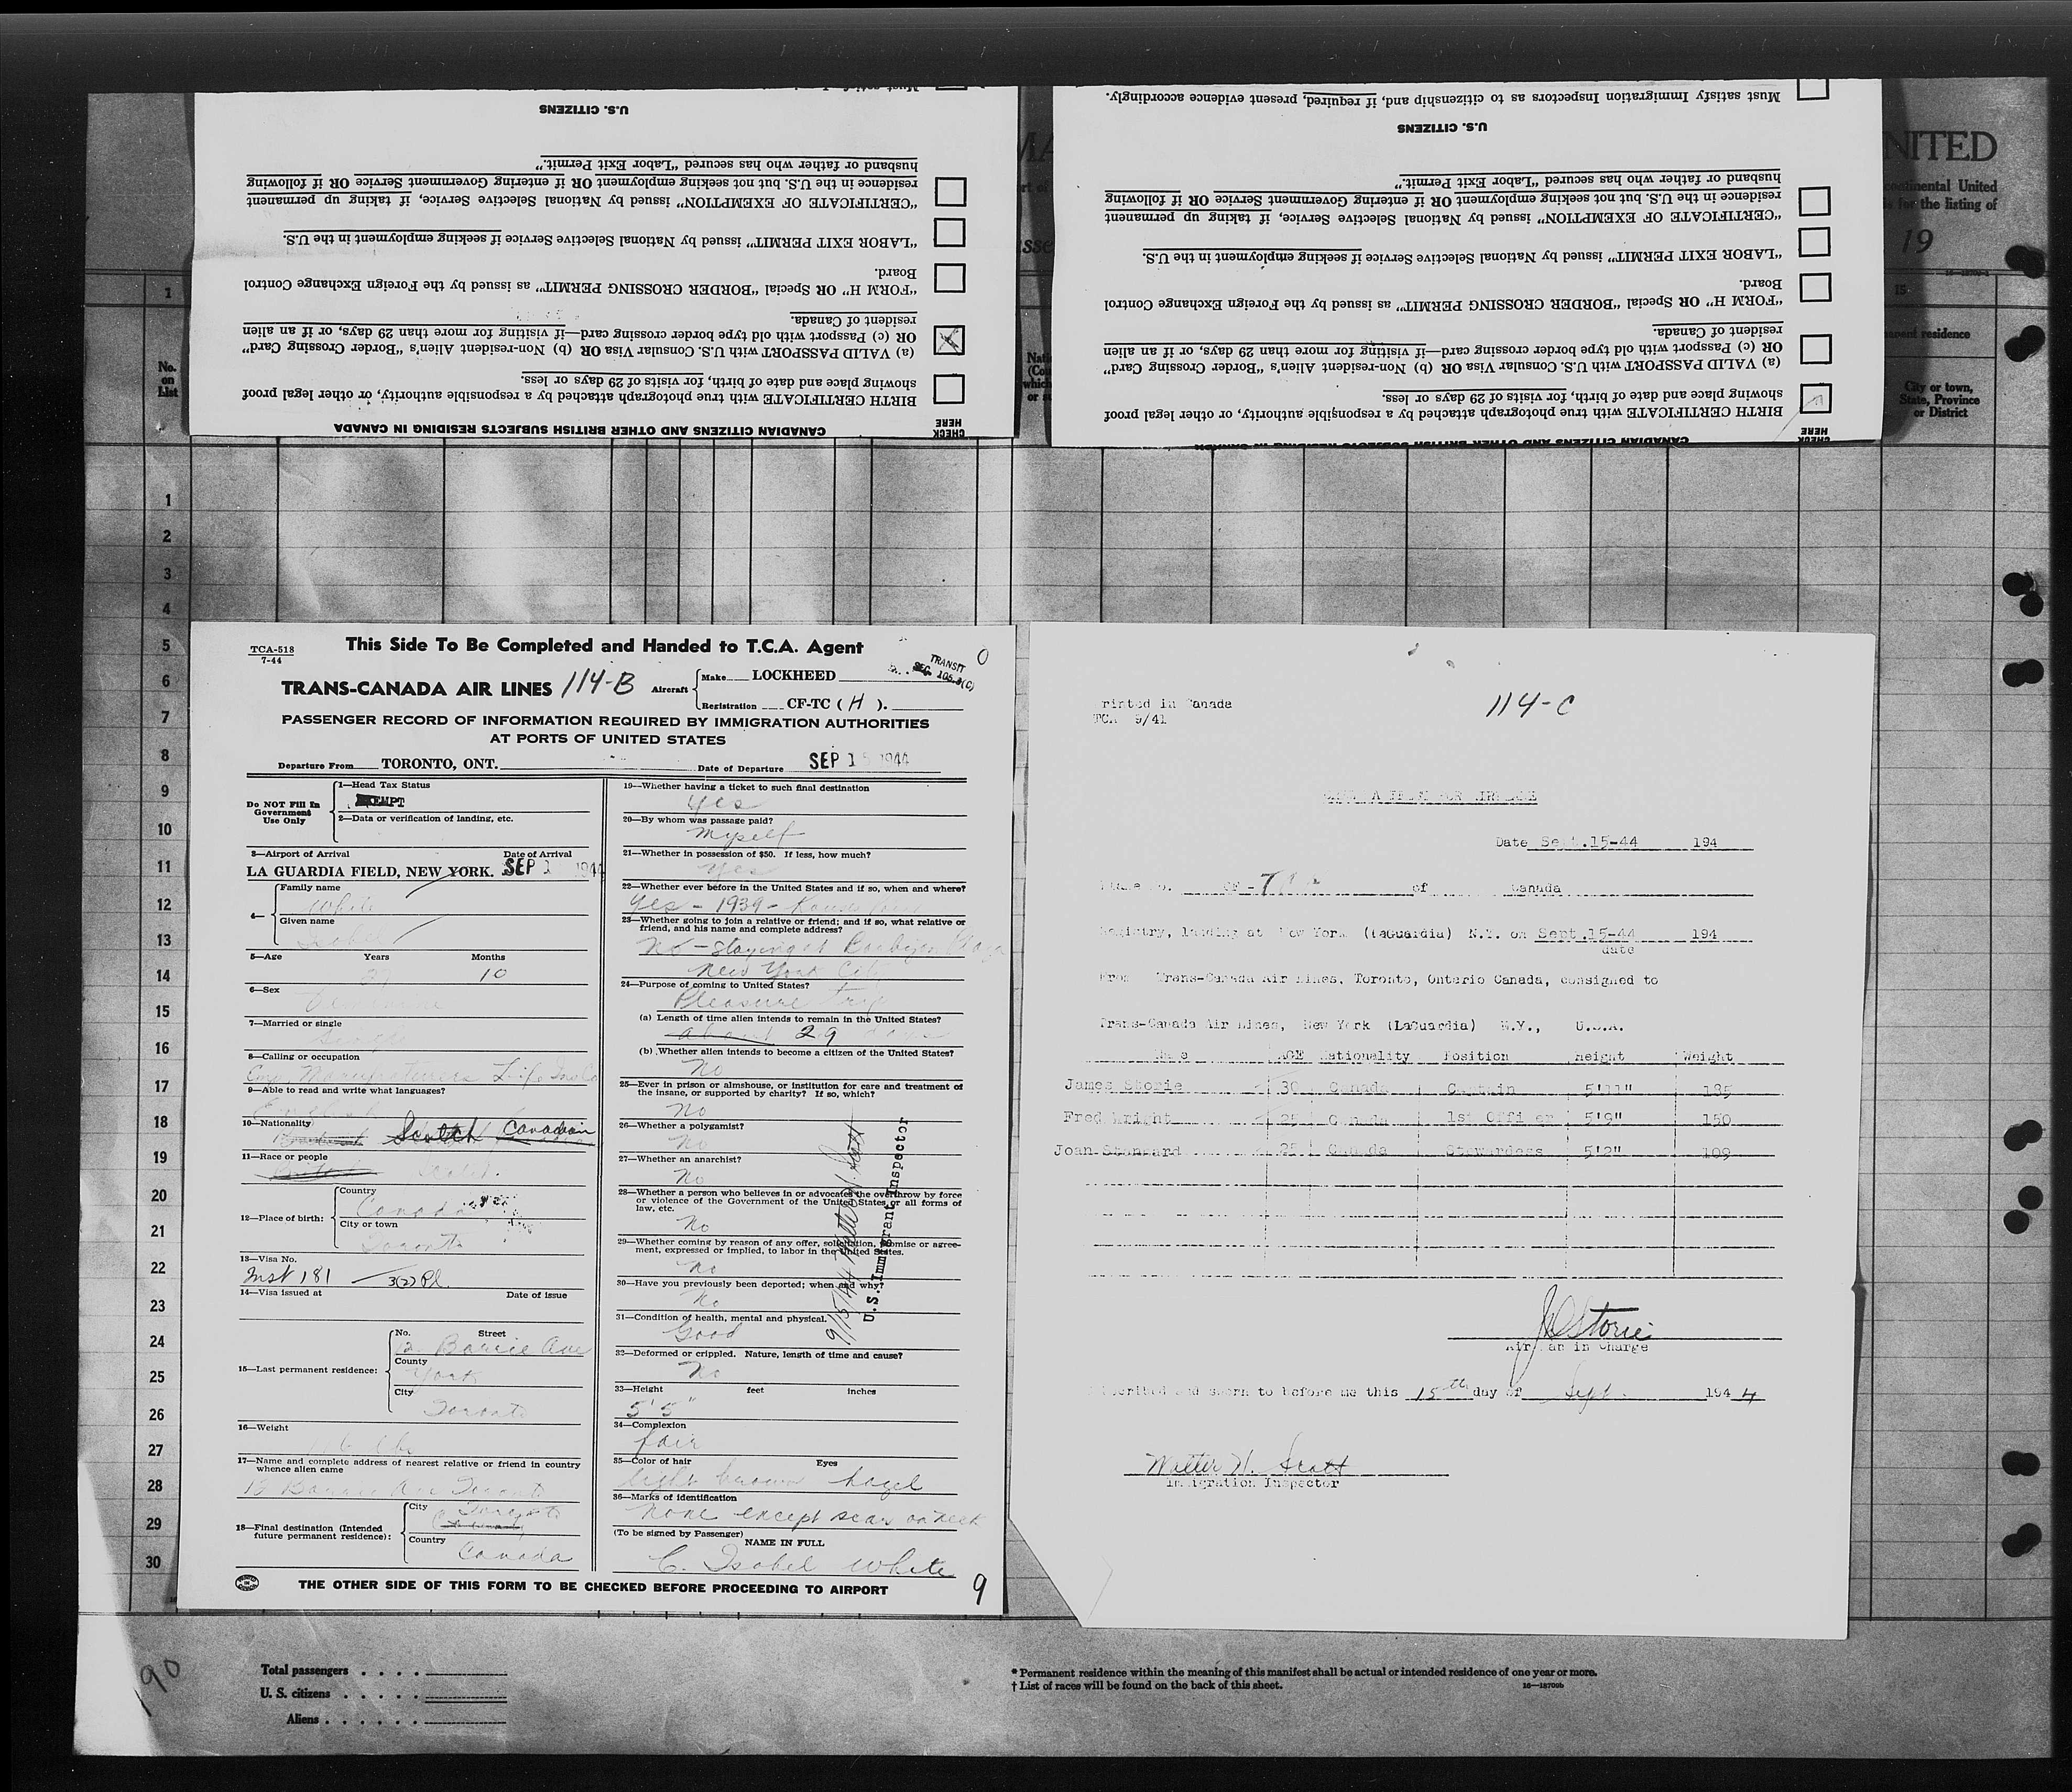 U.S. CITIZENS
"CERTIFICATE OF EXEMPTION" issued by National Selective Service, if taking up permanent
residence in the U.S. but not seeking employment OR if entering Government Service OR if following
husband or father who has secured "Labor Exit Permit."
"LABOR EXIT PERMIT" issued by National Selective Service if seeking employment in the U.S.
"FORM H" OR Special "BORDER CROSSING PERMIT" as issued by the Foreign Exchange Control
Board.
(a) VALID PASSPORT with U.S. Consular Visa OR (b) Non-resident Alien's "Border Crossing Card"
OR (c) Passport with old type border crossing card—if visiting for more than 29 days, or if an alien
resident of Canada.
BIRTH CERTIFICATE with true photograph attached by a responsible authority, or other legal proof
showing place and date of birth, for visits of 29 days or less.
CHECK HERE
CANADIAN CITIZENS AND OTHER BRITISH SUBJECTS RESIDING IN CANADA
Must satisfy Immigration Inspectors as to citizenship and, if required, present evidence accordingly.
U.S. CITIZENS
"CERTIFICATE OF EXEMPTION" issued by National Selective Service, if taking up permanent
residence in the U.S. but not seeking employment OR if entering Government Service OR if following
husband or father who has secured "Labor Exit Permit."
"LABOR EXIT PERMIT" issued by National Selective Service if seeking employment in the U.S.
"FORM H" OR Special "BORDER CROSSING PERMIT" as issued by the Foreign Exchange Control
Board.
(a) VALID PASSPORT with U.S. Consular Visa OR (b) Non-resident Alien's "Border Crossing Card"
OR (c) Passport with old type border crossing card—if visiting for more than 29 days, or if an alien
resident of Canada.
BIRTH CERTIFICATE with true photograph attached by a responsible authority, or other legal proof
showing place and date of birth, for visits of 29 days or less.
CHECK HERE
CANADIAN CITIZENS AND OTHER BRITISH SUBJECTS RESIDING IN CANADA
NITED
continental United
for the listing of
19
15
residence
City or town,
State, Province
or District
1
No.
on
List
1
2
3
4
5
6
7
8
9
10
11
12
13
14
15
16
17
18
19
20
21
22
23
24
25
26
27
28
29
30
TCA-518
7-44
This Side To Be Completed and Handed to T.C.A. Agent
TRANSIT
SEC. 106.3(C)
TRANS-CANADA AIR LINES 114-B
Aircraft
Make LOCKHEED
Registration CF-TC ( H ).
PASSENGER RECORD OF INFORMATION REQUIRED BY IMMIGRATION AUTHORITIES
AT PORTS OF UNITED STATES
Departure From TORONTO, ONT. Date of Departure SEP 15 1944
Do NOT Fill In
Government
Use Only
1—Head Tax Status
EXEMPT
2—Data or verification of landing, etc.
3—Airport of Arrival Date of Arrival
LA GUARDIA FIELD, NEW YORK. SEP 1 1944
4—
Family name
White
Given name
Isobel
5—Age Years Months
10
6—Sex
7—Married or single
Single
8—Calling or occupation
Manufacturers Life Ins Co
9—Able to read and write what languages?
English
10—Nationality
Scotch Canadian
11—Race or people
12—Place of birth:
Country
Canada
City or town
Toronto
13—Visa No.
Inst 181 3(2) Pl.
14—Visa issued at Date of issue
15—Last permanent residence:
No. Street
Barrie Ave
County
York
City
Toronto
16—Weight
17—Name and complete address of nearest relative or friend in country
whence alien came
Barrie Ave Toronto
18—Final destination (Intended
future permanent residence):
City
Toronto
Country
Canada
19—Whether having a ticket to such final destination
Yes
20—By whom was passage paid?
Myself
21—Whether in possession of $50. If less, how much?
Yes
22—Whether ever before in the United States and if so, when and where?
Yes - 1939 -
23—Whether going to join a relative or friend; and if so, what relative or
friend, and his name and complete address?
No - staying at Barbizon Plaza
New York City
24—Purpose of coming to United States?
Pleasure trip
(a) Length of time alien intends to remain in the United States?
about 29 days
(b) Whether alien intends to become a citizen of the United States?
No
25—Ever in prison or almshouse, or institution for care and treatment of
the insane, or supported by charity? If so, which?
No
26—Whether a polygamist?
No
27—Whether an anarchist?
No
28—Whether a person who believes in or advocates the overthrow by force
or violence of the Government of the United States or all forms of
law, etc.
No
29—Whether coming by reason of any offer, solicitation, promise or agree-
ment, expressed or implied, to labor in the United States.
No
30—Have you previously been deported; when and why?
No
31—Condition of health, mental and physical.
Good
32—Deformed or crippled. Nature, length of time and cause?
No
33—Height feet inches
5' 5"
34—Complexion
fair
35—Color of hair Eyes
light brown hazel
36—Marks of identification
None except scar on neck
(To be signed by Passenger)
NAME IN FULL
C. Isobel White
9/15/44 Walter H. Scott
U.S. Immigrant Inspector
THE OTHER SIDE OF THIS FORM TO BE CHECKED BEFORE PROCEEDING TO AIRPORT
9
rinted in Canada
TCA 9/41
114-C
Date Sept.15-44 194
CF- of Canada
Registry, landing at New York (LaGuardia) N.Y. on Sept.15-44 194
date
From Trans-Canada Air Lines, Toronto, Ontario Canada, consigned to
Trans-Canada Air Lines, New York (LaGuardia) N.Y., U.S.A.
Name AGE Nationality Position Height Weight
James Storie 30 Canada Captain 5'11" 185
Fred Wright 25 Canada 1st Officer 5'9" 150
Joan Stannard 25 Canada Stewardess 5'2" 109
Storie
Airman in Charge
Subscribed and sworn to before me this 15th day of Sept. 1944
Walter H. Scott
Immigration Inspector
190
Total passengers
U. S. citizens
Aliens
* Permanent residence within the meaning of this manifest shall be actual or intended residence of one year or more.
† List of races will be found on the back of this sheet.